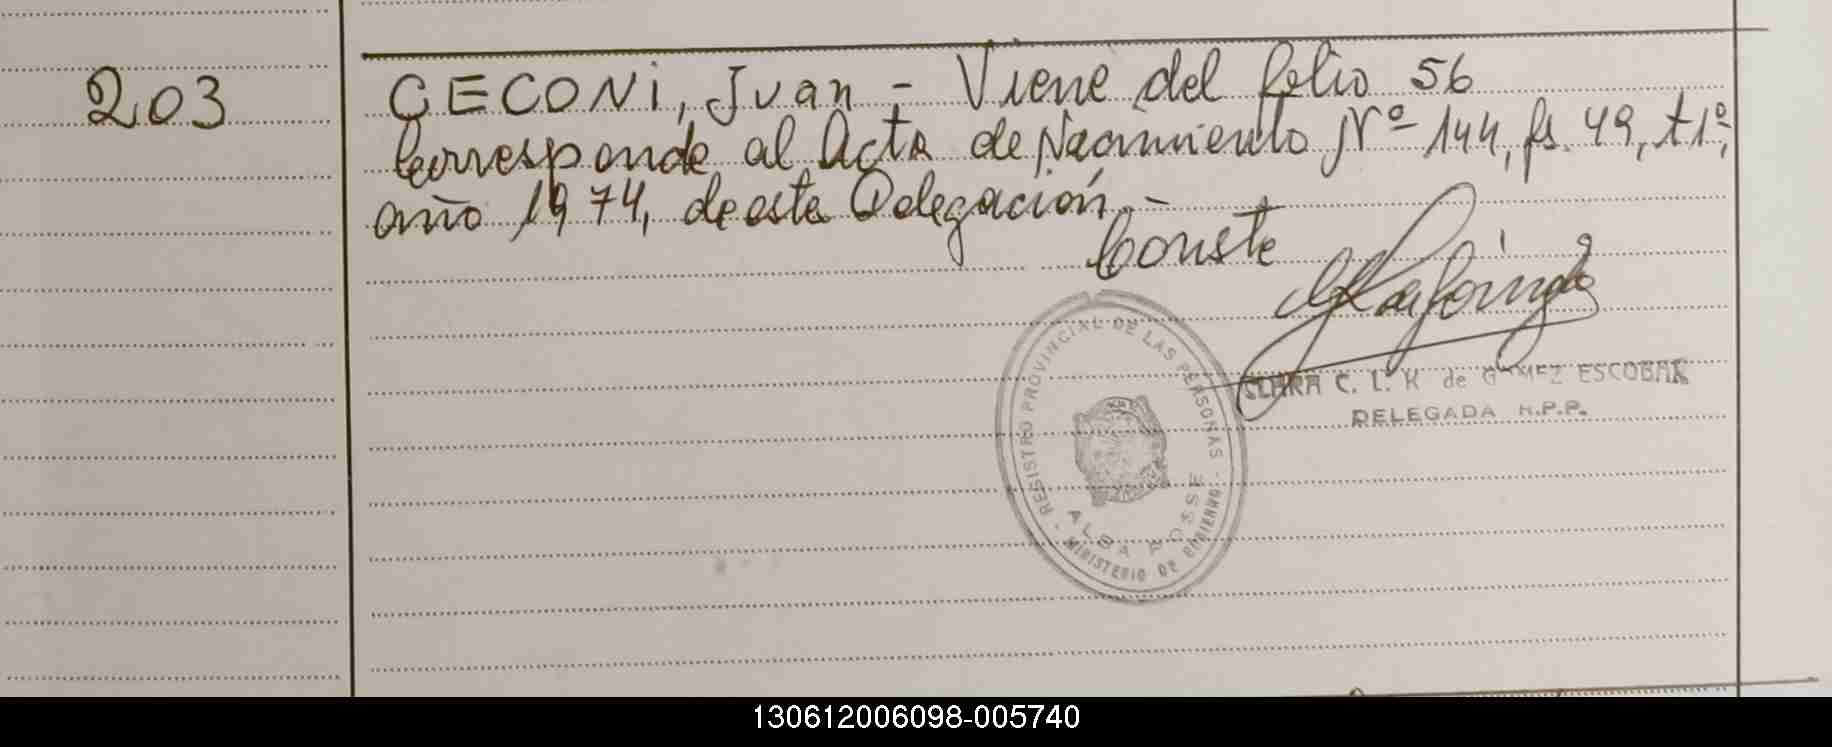 203
CECONi, Juan - Viene del folio 56
Corresponde al Acta de Nacimiento Nº 144, fs. 49, t 1º,
año 1974, de esta Delegación.-
Conste
CLARA C. L. K de GOMEZ ESCOBAR
DELEGADA R.P.P.
REGISTRO PROVINCIAL DE LAS PERSONAS - MINISTERIO DE GOBIERNO -
ALBA POSSE
130612006098-005740